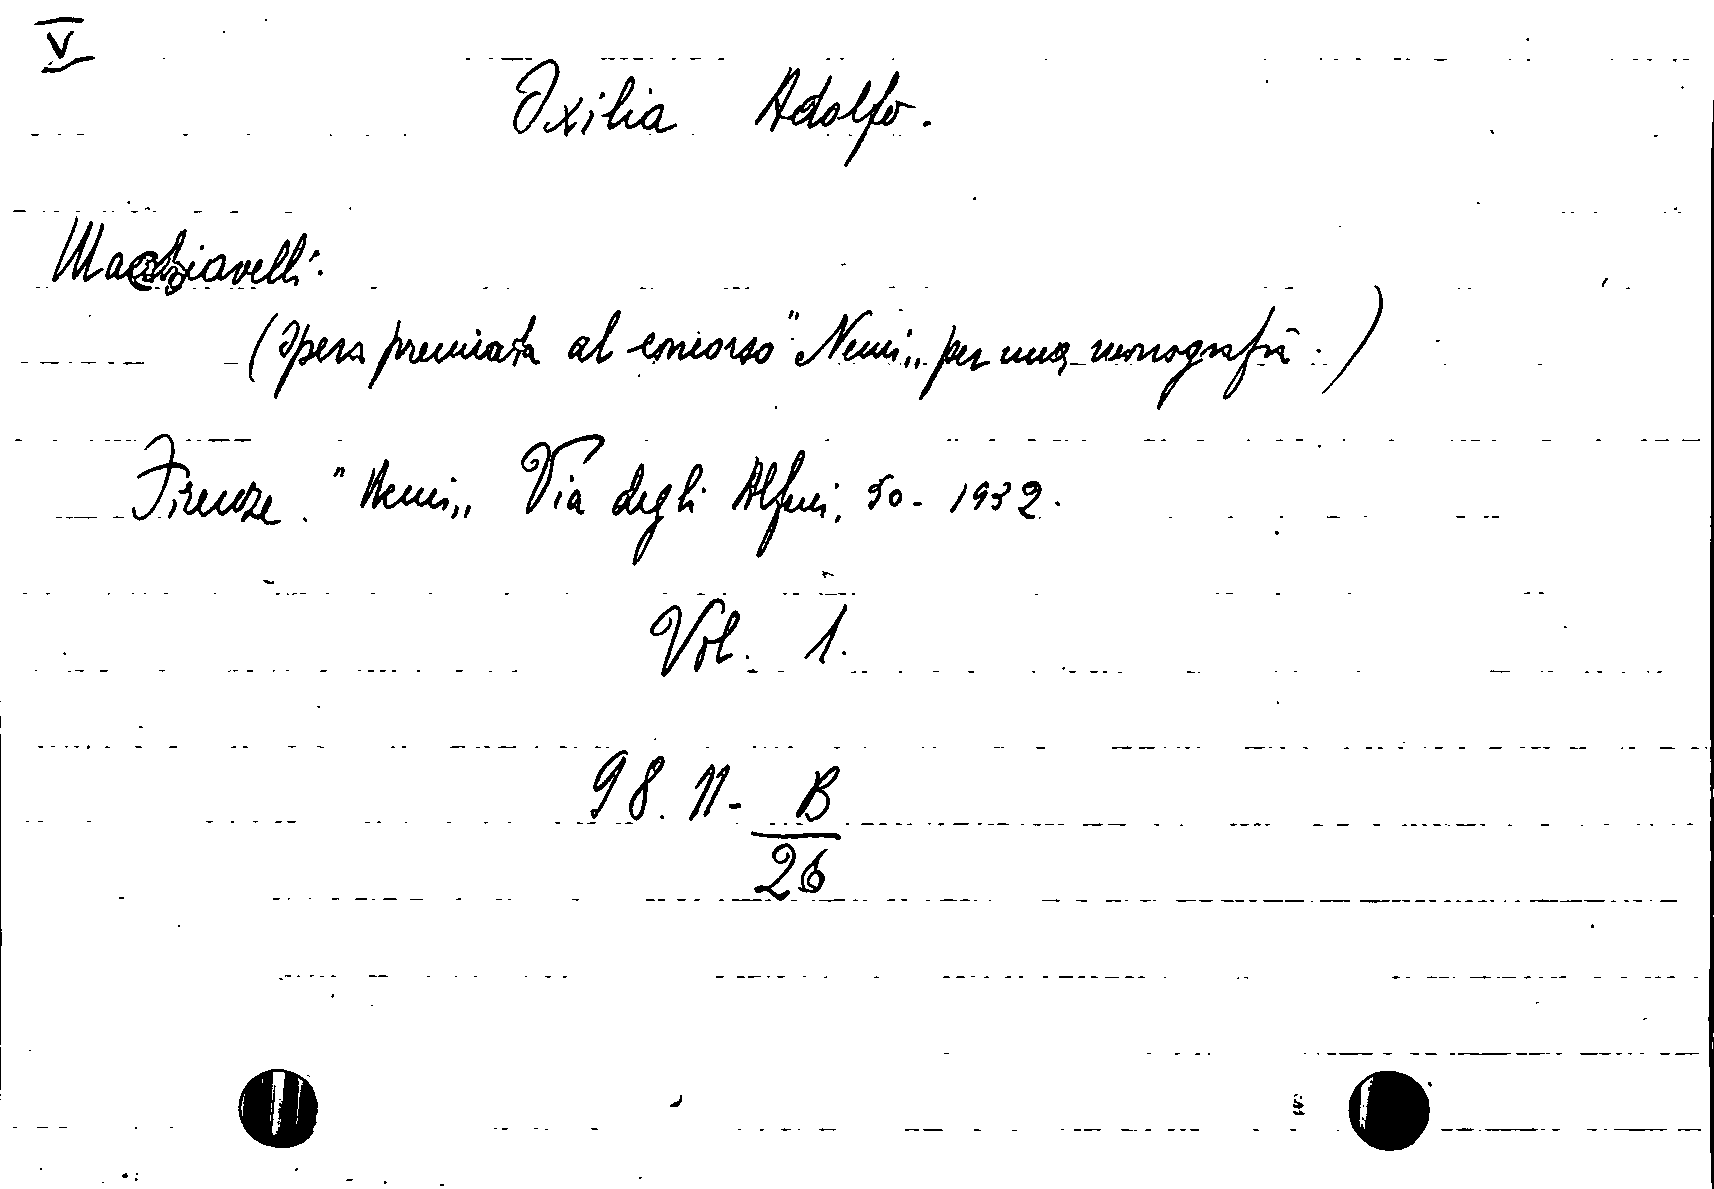 V
Oxilia Adolfo.
Machiavelli.
(Opera premiata al concorso "Nemi„ per una monografia.)
Firenze. "Nemi„ Via degli Alfani, 50 - 1932.
Vol. 1.
98. 11- B
26